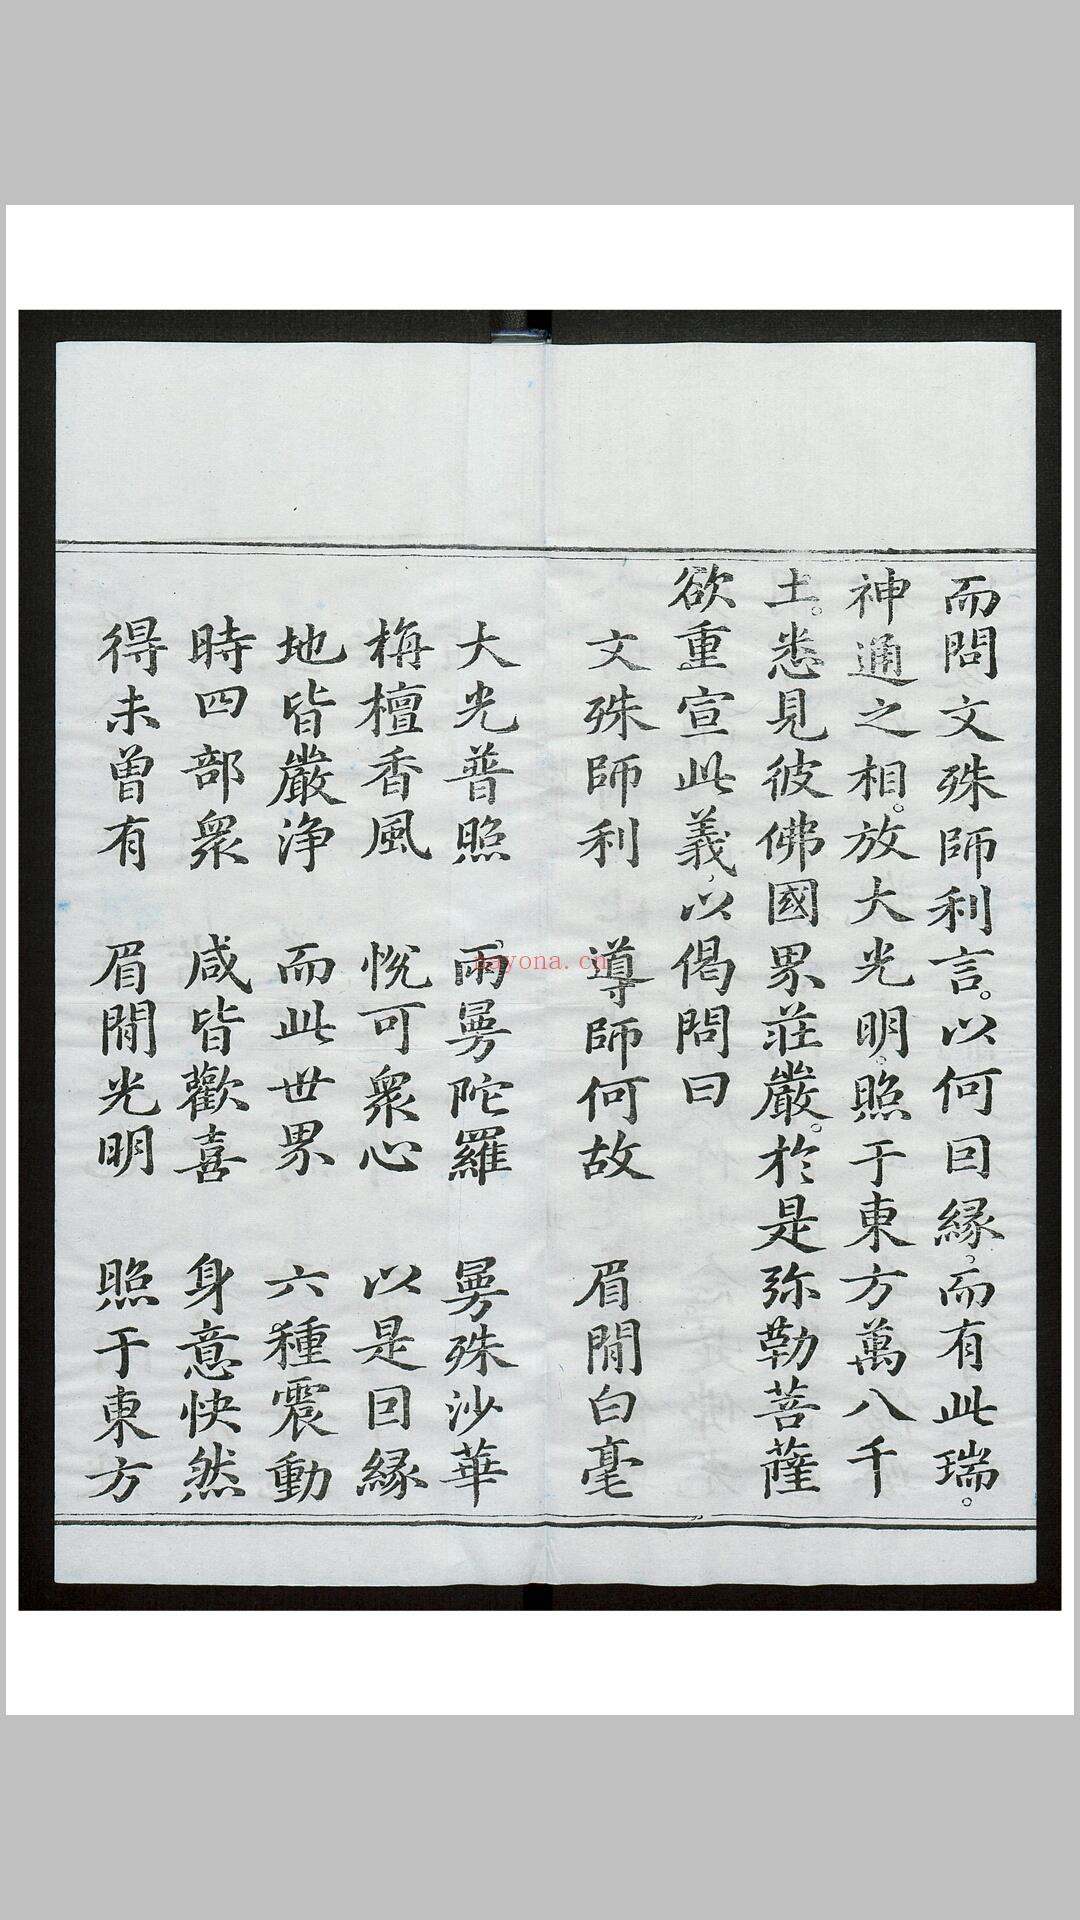 而問文殊師利言。以何因緣。而有此瑞。
神通之相。放大光明。照于東方萬八千
土。悉見彼佛國界莊嚴。於是弥勒菩薩
欲重宣此義。以偈問曰
文殊師利　導師何故　眉間白毫
大光普照　雨曼陀羅　曼殊沙華
栴檀香風　悅可衆心　以是因緣
地皆嚴淨　而此世界　六種震動
時四部衆　咸皆歡喜　身意快然
得未曾有　眉間光明　照于東方
nayona.cn